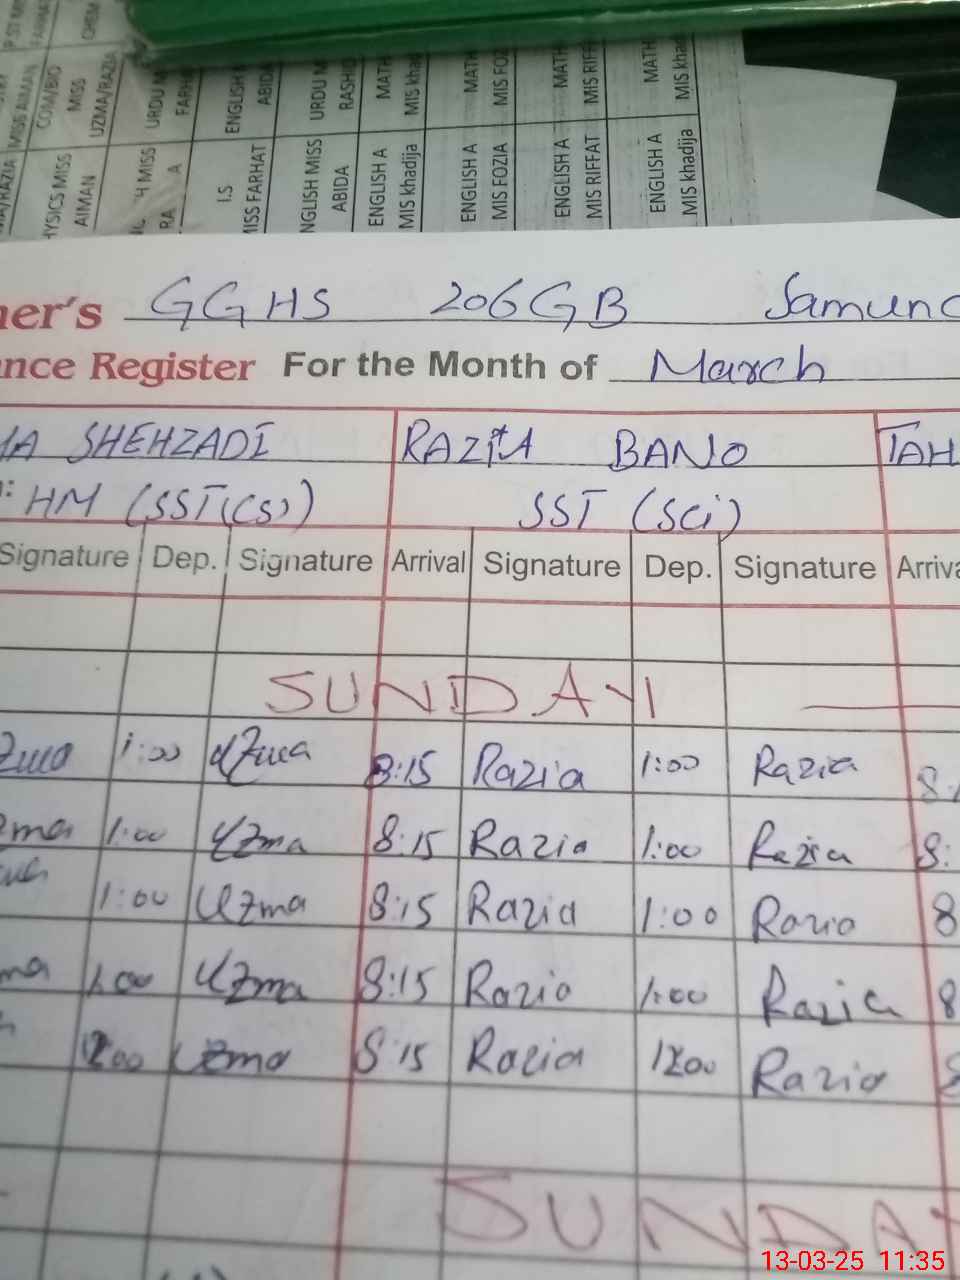 COM/BIO
MISS
UZMA/RAZIA
PHYSICS MISS
AIMAN
ENGLISH
ABIDA
I.S
MISS FARHAT
URDU
RASHID
ENGLISH MISS
ABIDA
MATH
MIS khadija
ENGLISH A
MIS khadija
MATH
MIS FOZIA
ENGLISH A
MIS FOZIA
MATH
MIS RIFFAT
ENGLISH A
MIS RIFFAT
MATH
MIS khadija
ENGLISH A
MIS khadija
her's GGHS 206GB Samund
nce Register For the Month of March
MA SHEHZADI RAZIA BANO TAH
: HM (SST(CS)) SST (Sci)
Signature Dep. Signature Arrival Signature Dep. Signature Arriva
SUNDAY
Uzma 1:00 Uzma 8:15 Razia 1:00 Razia 8:
zma 1:00 Uzma 8:15 Razia 1:00 Razia 8:
1:00 Uzma 8:15 Razia 1:00 Razia 8
ma 1:00 Uzma 8:15 Razia 1:00 Razia 8
1200 Uzma 8:15 Razia 1200 Razia 8
SUNDAY
13-03-25 11:35